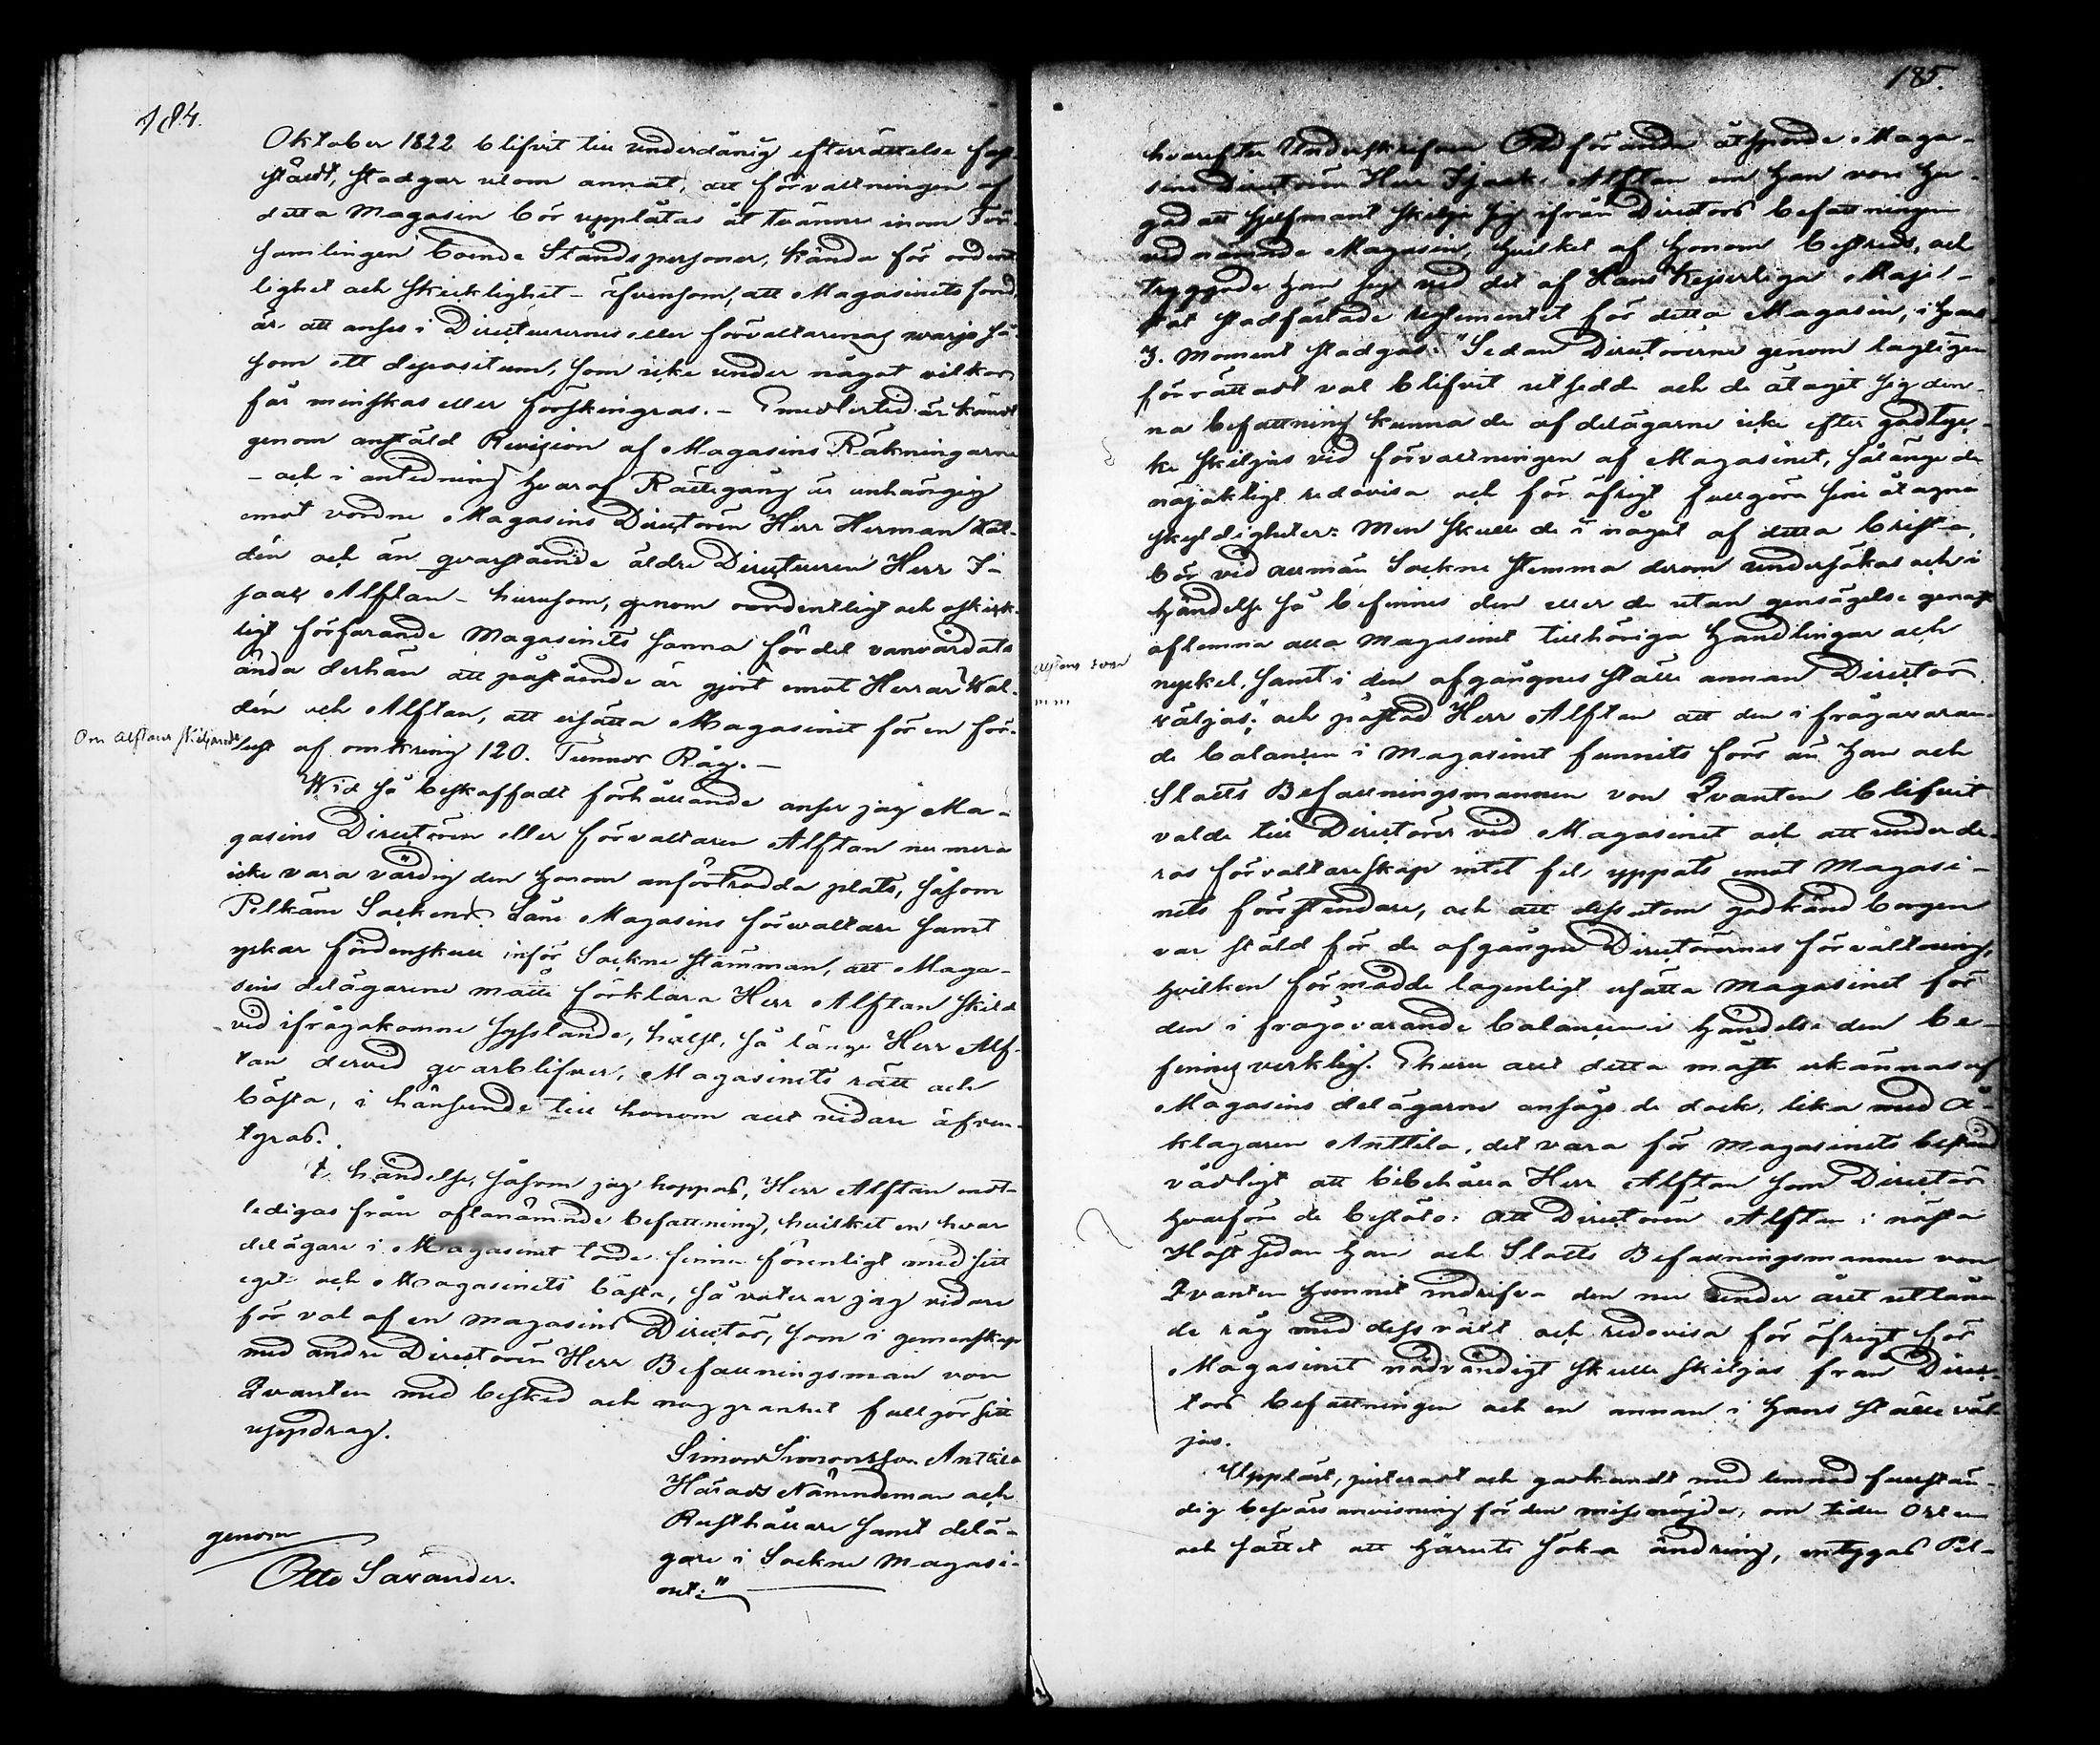 184.
Oktober 1822 blifvit till underdånig efterrättelse fast-
stäldt, stadgar utom annat, att förvaltningen af
detta Magasin bör upplåtas åt tvänne inom För-
samlingen boende Ståndspersoner, kända för ordent-
lighet och skicklighet – äfvensom, att Magasinets fond
är att anses i Directeurernes eller förvaltarenas warjo så-
som ett depositum, som icke under något vilkor
får minskas eller förskingras. – Emedlertid är kändt
genom anstäld Revision af Magasins Räkningarne
– och i anledning hvaraf Rättegång är anhängig
emot vordne Magasins Directören Herr Herman Wal-
dén och än qvarstående äldre Directeuren Herr I-
saac Alftan – hurusom, genom oordentligt och oskick-
ligt förfarande Magasinets sanna fördel vanvårdats
ända derhän att påstående är gjort emot Herrar Wal-
dén och Alftan, att ersätta Magasinet för en för-
Om Alftans skiljande
lust af omkring 120. Tunnor Råg. –
Wid så beskaffadt förhållande anser jag Ma-
gasins Directören eller förvaltaren Alftan numera
icke vara värdig den honom anförtrodda plats, såsom
Pelkäne Sockens Låne Magasins förwaltare samt
yrkar fördenskull inför Sockne stämman, att Maga-
sins delägarene måtte förklara Herr Alftan skild
vid ifrågakomne sysslande, hälst, så länge Herr Alf-
tan dervid qvarblifver, Magasinets rätt och
bästa, i hänseende till honom allt vidare äfven-
tyras.
I händelse, såsom jag hoppas, Herr Alftan ent-
ledigas från oftanämnde befattning, hvilket en hvar
delägare i Magasinet torde finna förenligt med sitt
eget och Magasinets bästa, så voterar jag vidare
för val af en Magasins Director, som i gemenskap
med andre Directoren Herr Befallningsman von
Qvanten med besked och noggranhet fullgör sitt
uppdrag.
Simon Simonsson Anttila
Härads Nämndeman och
Rusthållare samt delä-
gare i Sockne Magasi-
net."
genom
Otto Savander.
185.
hvarefter Undertskrifven Ordförande åtsporde Maga-
sins Directoren Herr Isaak Alftan om han vore hu-
gad att sjelfmant skilja sig ifrån Directors befattningen
vid nämnde Magasin, hvilket af honom bestreds, och
tryggade han sig vid det af Hans Kejserliga Maje-
stät stadfästade reglementet för detta Magasin, i hvars
3. Moment stadgas: "Sedan Directörerne genom lagligen
förrättadt val blifvit utsedde och de åtagit sig den-
na befattning kunna de af delägarne icke efter godtyc-
ke skiljas vid förvaltningen af Magasinet, sålänge de
nöjaktigt redovisa och för öfrigt fullgöra sine åtagne
skyldigheter: Men skulle de i något af detta brista,
bör vid allmän Sockne stemma derom undersökas och i
händelse så befinnes den eller de utan gensägelse genast
aflemna alla Magasinet tillhöriga handlingar och
Alftans svar
nyckel, samt i den afgångnes ställe annan Director
väljas;" och påstod Herr Alftan att den i frågavaran-
de balancen i Magasinet funnits förr än han och
Slotts Befallningsmannen von Qvanten blifvit
valde till Directörer vid Magasinet och att under de-
ras förvaltareskap intet fel yppats emot Magasi-
nets föreståndare, och att dessutom godkänd borgen
var stäld för de afgångne Directörernes förvaltning,
hvilken förmådde lagenligt ersätta Magasinet för
den i frågavarande balancen i händelse den be-
finnes verklig. Ehuru allt detta måste erkännas af
Magasins delägarne ansågo de dock, lika med å-
klagaren Anttila, det vara för Magasinets bestånd
vådligt att bibehålla Herr Alftan som Director
hvarföre de beslöto: att Directoren Alftan i nästa
Höst sedan han och Slotts Befallningsmannen von
Qvanten hunnit indrifva den nu under året utlåna-
de råg med dess växt och redovisa för öfrigt för
Magasinet nödvändigt skulle skiljas från Direc-
tors befattningen och en annan i hans ställe väl-
jas.
Uppläst, justeradt och godkändt med lemnad fullstän-
dig besvärs anvisning för den missnöjde, om tiden Orten
och sättet att häruti söka ändring, intygas Pel-